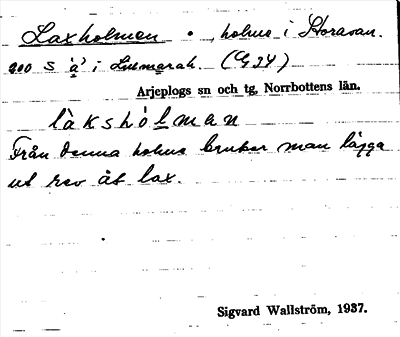 Laxholmen • , holme i Storavan.
200 S 'a' i Lulmarak. (G 24)
Arjeplogs sn och tg, Norrbottens län.
làkshólman
Från denna holme bruker man lägga
ut rev åt lax.
Sigvard Wallström, 1937.